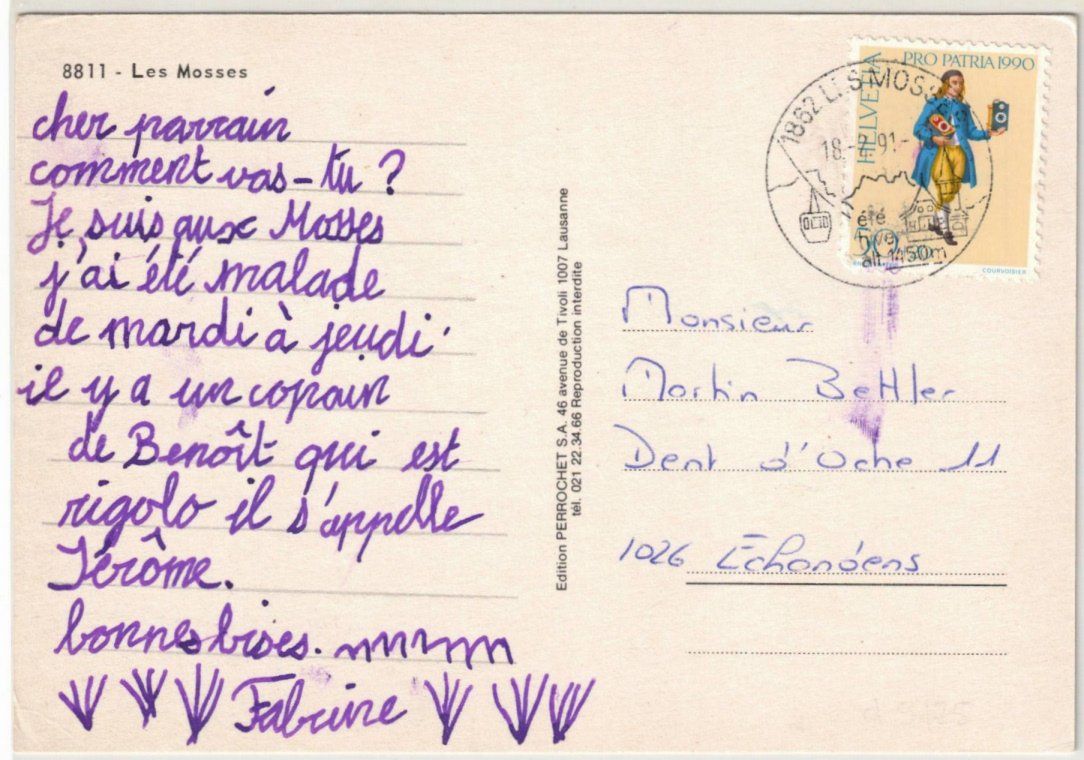 8811 - Les Mosses
cher parrain
comment vas-tu ?
Je suis aux Mosses
j'ai été malade
de mardi à jeudi
il y a un copain
de Benoît qui est
rigolo il s'appelle
Jérôme.
bonnes bises.
Edition PERROCHET S.A. 46 avenue de Tivoli 1007 Lausanne
tél. 021 22.34.66 Reproduction interdite
PRO PATRIA 1990
HELVETIA
COURVOISIER
1862 LES MOSSES
été
alt. 1450m
Monsieur
Martin Bettler
Dent d'Oche 11
1026 Echandens